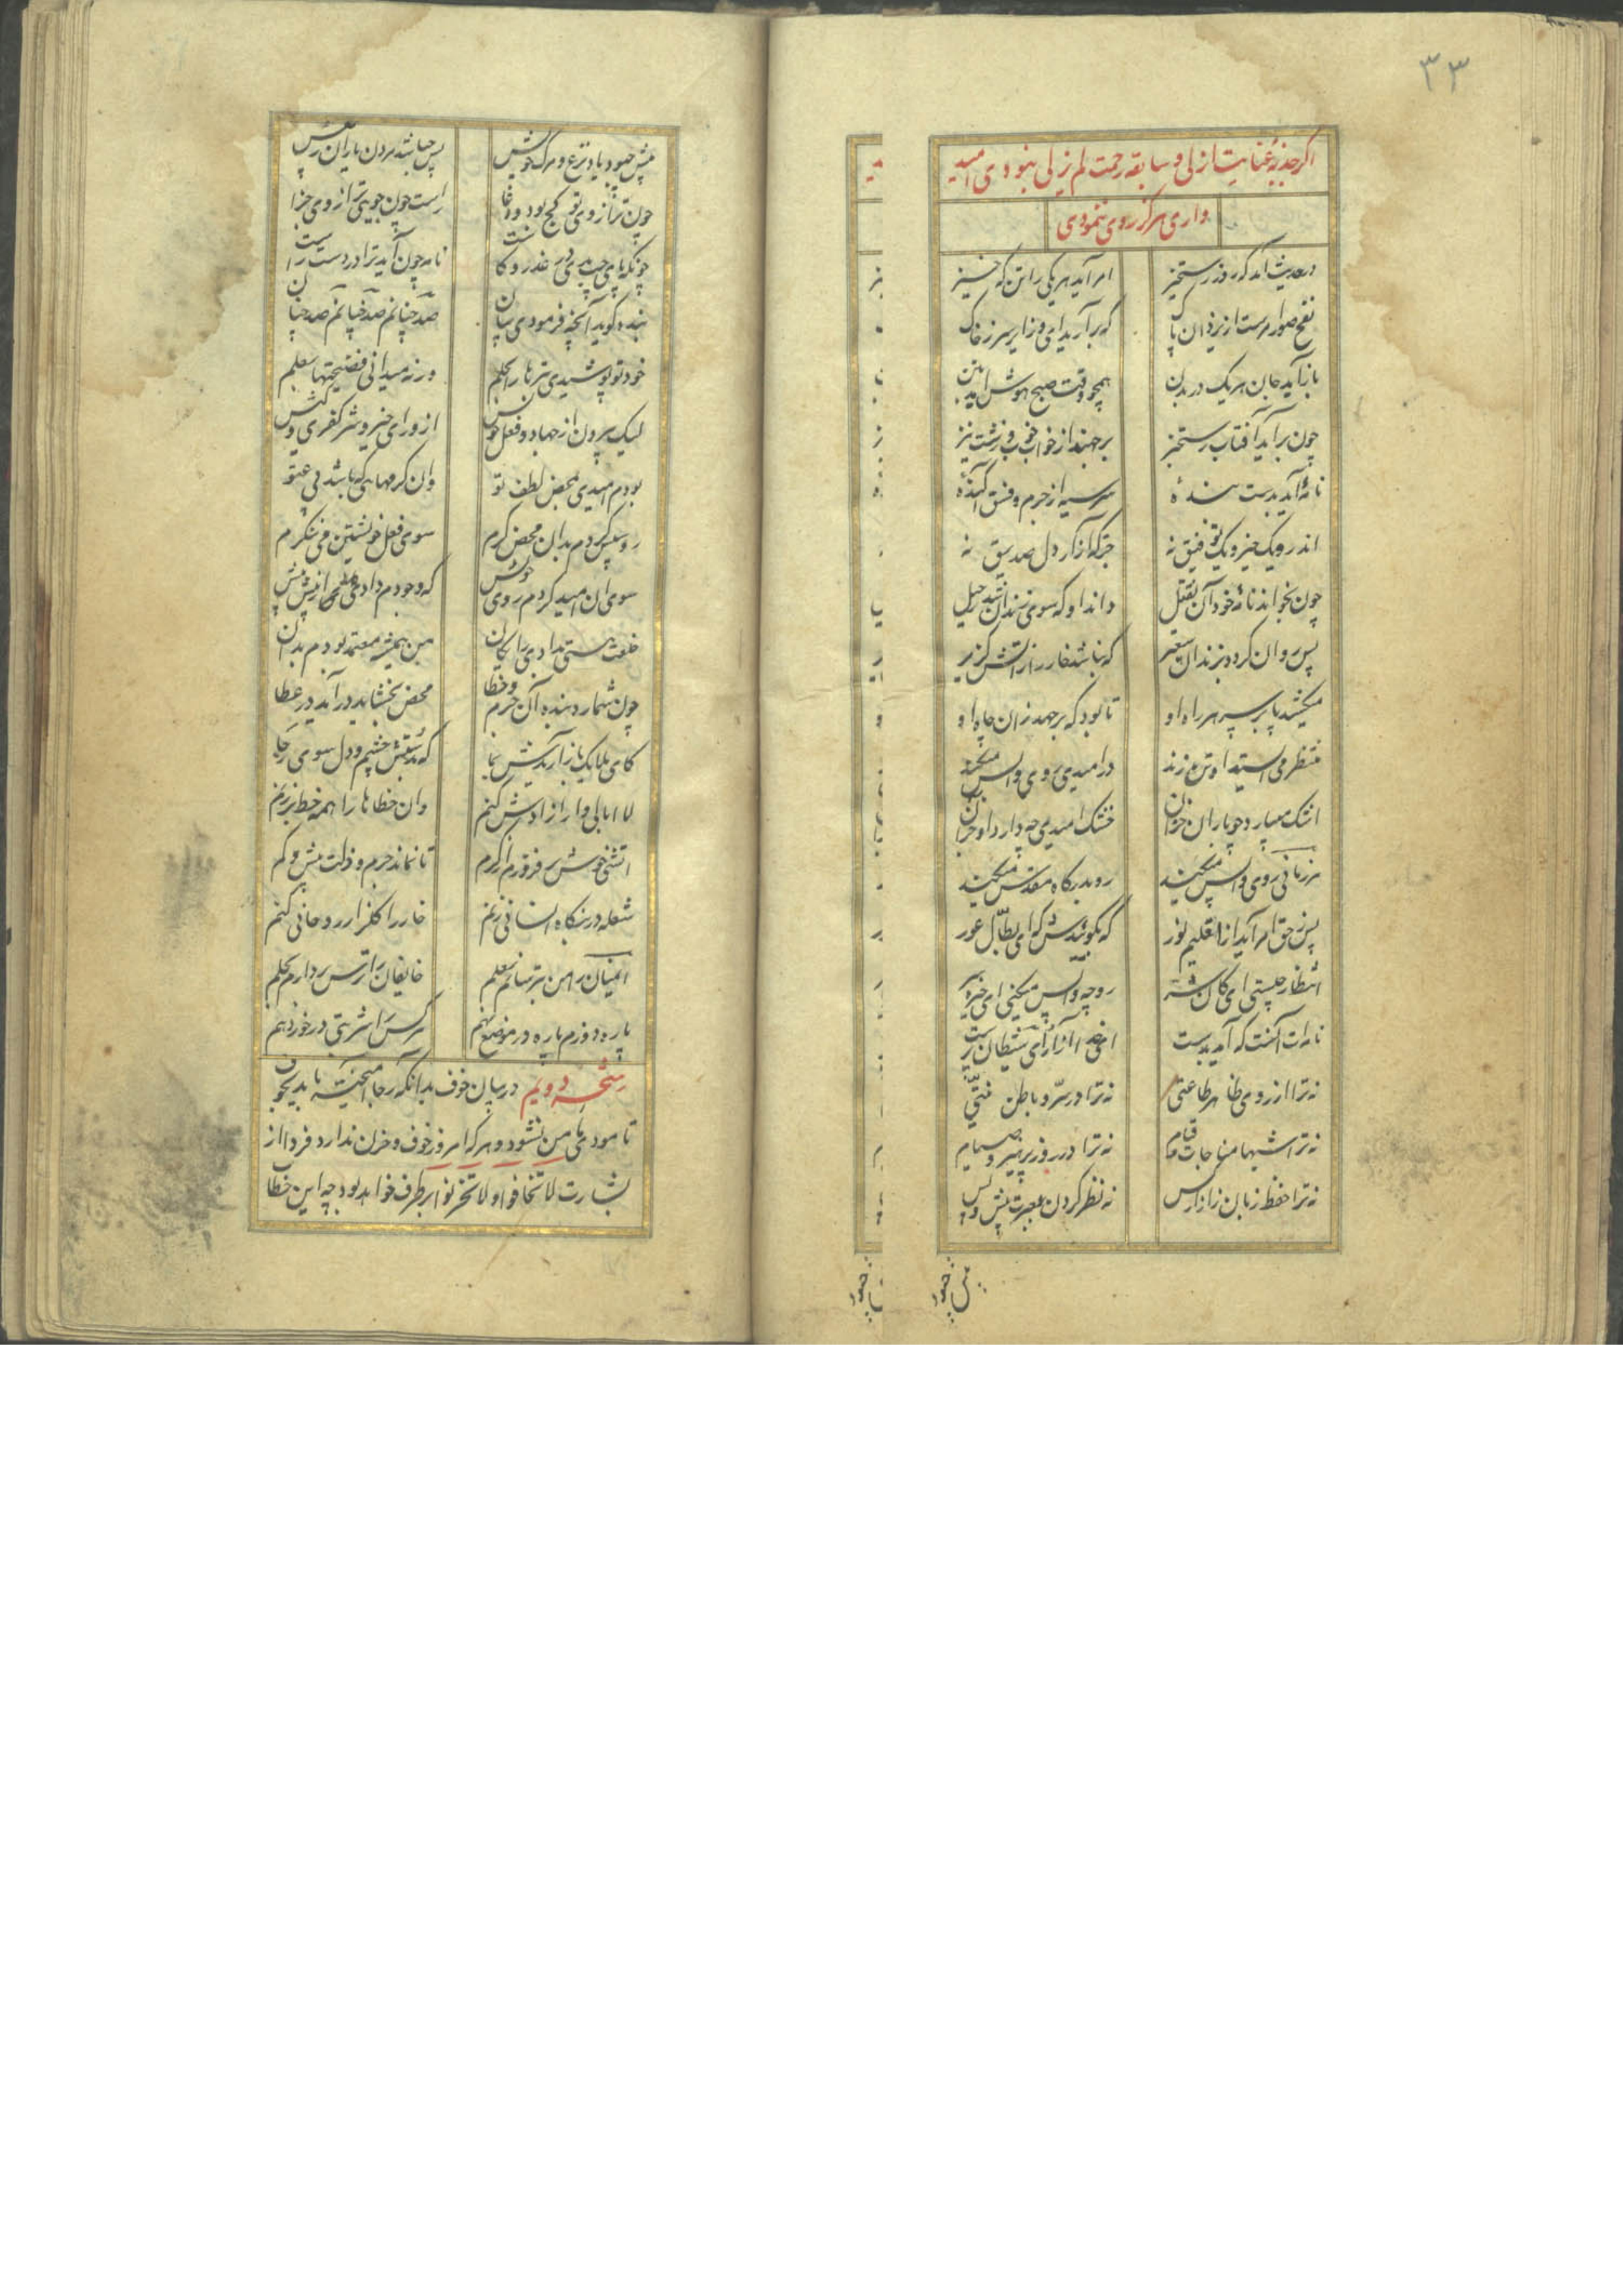 ٣٣
اگر جذبهٔ عنایت ازلی و سابقه رحمت لم یزلی نبودی امید
واری هرگز روی ننمودی
در حدیث آمد که روز رستخیز امر آید هر یکی را تن که خیز
نفخ صور امرست از یزدان پاک که برآرید ای ذرایر سر ز خاک
باز آید جان هر یک در بدن همچو وقت صبح هوش آید بتن
چون برآید آفتاب رستخیز برجهند از خواب خوب و زشت نیز
نامهٔ آید بدست بندهٔ سر سیه از جرم و فسق آکندهٔ
اندرو یک خیر و یک توفیق نه جز که آزار دل صدیق نه
چون بخواند نامهٔ خود آن ثقیل داند او که سوی زندان شد رحیل
پس روان گردد بزندان سعیر که نباشد خار را ز آتش گزیر
میکشد پا بر سر هر راه او تا بود که برجهد زان چاه او
منتظر می‌ایستد او تن زند در امیدی روی واپس میکند
اشک میبارد چو باران خزان خشک امیدی چه دارد او جز آن
هر زمانی روی واپس میکند رو بدرگاه مقدس میکند
پس ز حق امر آید از اقلیم نور که بگوییدش که ای بطال عور
انتظار چیستی ای کان شر رو چه واپس میکنی ای خیره سر
نامه‌ات آنست که آمد بدست ای خدا آزار و ای شیطان پرست
نه ترا از روی ظاهر طاعتی نه ترا در سر و باطن نیتی
نه ترا شبها مناجات و قیام نه ترا در روز پرهیز و صیام
نه ترا حفظ زبان ز آزار کس نه نظر کردن بعبرت پیش و پس
پیش چبود
پیش چبود یاد نزع و مرگ خویش پس چه باشد مردن یاران ز پیش
چون ترازوی تو کج بود و دغا راست چون جویی ترازوی جزا
چونکه پای چپ بدی در غدر و کاست نامه چون آید ترا در دست راست
بنده گوید آنچه فرمودی بیان صد چنانم صد چنانم صد چنان
خود تو پوشیدی بترها را بحلم ورنه میدانی فضیحتها بعلم
لیک بیرون از جهاد و فعل خویش از ورای خیر و شر و کفر و کیش
بودم امیدی بمحض لطف تو وان کرمهایی که باشد بی عتو
رو سپس کردم بدان محض کرم سوی فعل خویشتن می‌ننگرم
سوی آن امید کردم روی خویش که وجودم داده‌ای از پیش پیش
خلعت هستی بدادی رایگان من همیشه معتمد بودم بدان
چون شمارد بنده آن جرم و خطا محض بخشایش درآید در عطا
کای ملایک باز آریدش بما که بدستش چشم و دل سوی رجا
لاابالی وار آزادش کنم وان خطاها را همه خط بر زنم
آتشی خوش بر فروزم از کرم تا نماند جرم و زلت بیش و کم
شعله در بنگاه انسانی زنم خار را گلزار روحانی کنم
ایمنان را من بترسانم بعلم خایفان را ترس بردارم بحلم
پاره دوزم پاره در موضع نهم هر کسی را شربتی در خورد دهم
رشحه دویم در بیان خوف بدانکه رجا آمیخته باید بخوف
تا مودی بامن نشود و هر که امروز خوف و حزن ندارد فردا از
بشارت لا تخافوا و لا تحزنوا بر طرف خواهد بود چه این خطا